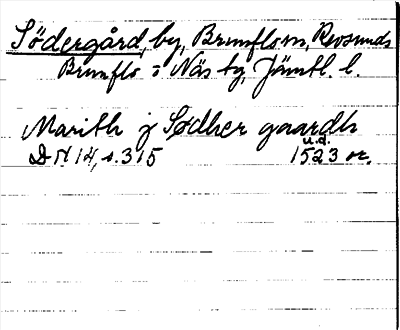 Södergård, by, Brunflo sn, Revsunds
Brunflo o Näs tg, Jämtl. l.
Marith j Sødher gaardh
u.d.
DN 14, s. 315 1523 or.